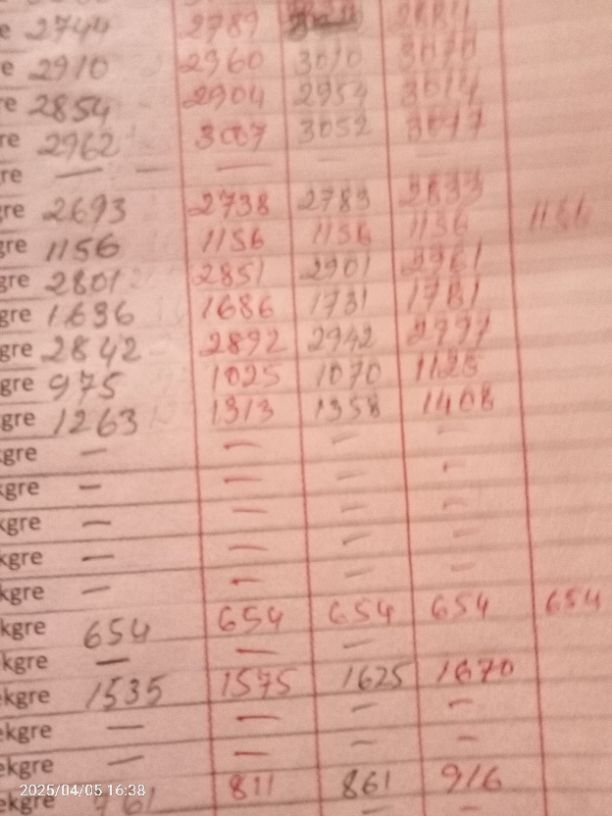 e 2744 2789
e 2910 2960 3010
re 2854 2904 2954 3014
re 2962 3007 3052
re — — — — —
gre 2693 2738 2783 2833
gre 1156 1156 1156 1156 1156
gre 2801 2851 2901 2961
gre 1636 1686 1731 1781
gre 2842 2892 2942
gre 975 1025 1070 1125
gre 1263 1313 1358 1408
gre — — — —
kgre — — — —
kgre — — — —
kgre — — — —
kgre — — — —
kgre 654 654 654 654 654
ekgre — — —
ekgre 1535 1575 1625 1670
ekgre — — — —
ekgre — — — —
ekgre 761 811 861 916
— —
2025/04/05 16:38